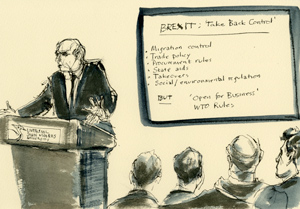 BREXIT: 'Take Back Control'
• Migration control
• Trade policy
• Procurement rules
• State aids
• Takeovers
• Social/environmental regulation
BUT 'Open for Business'
WTO Rules